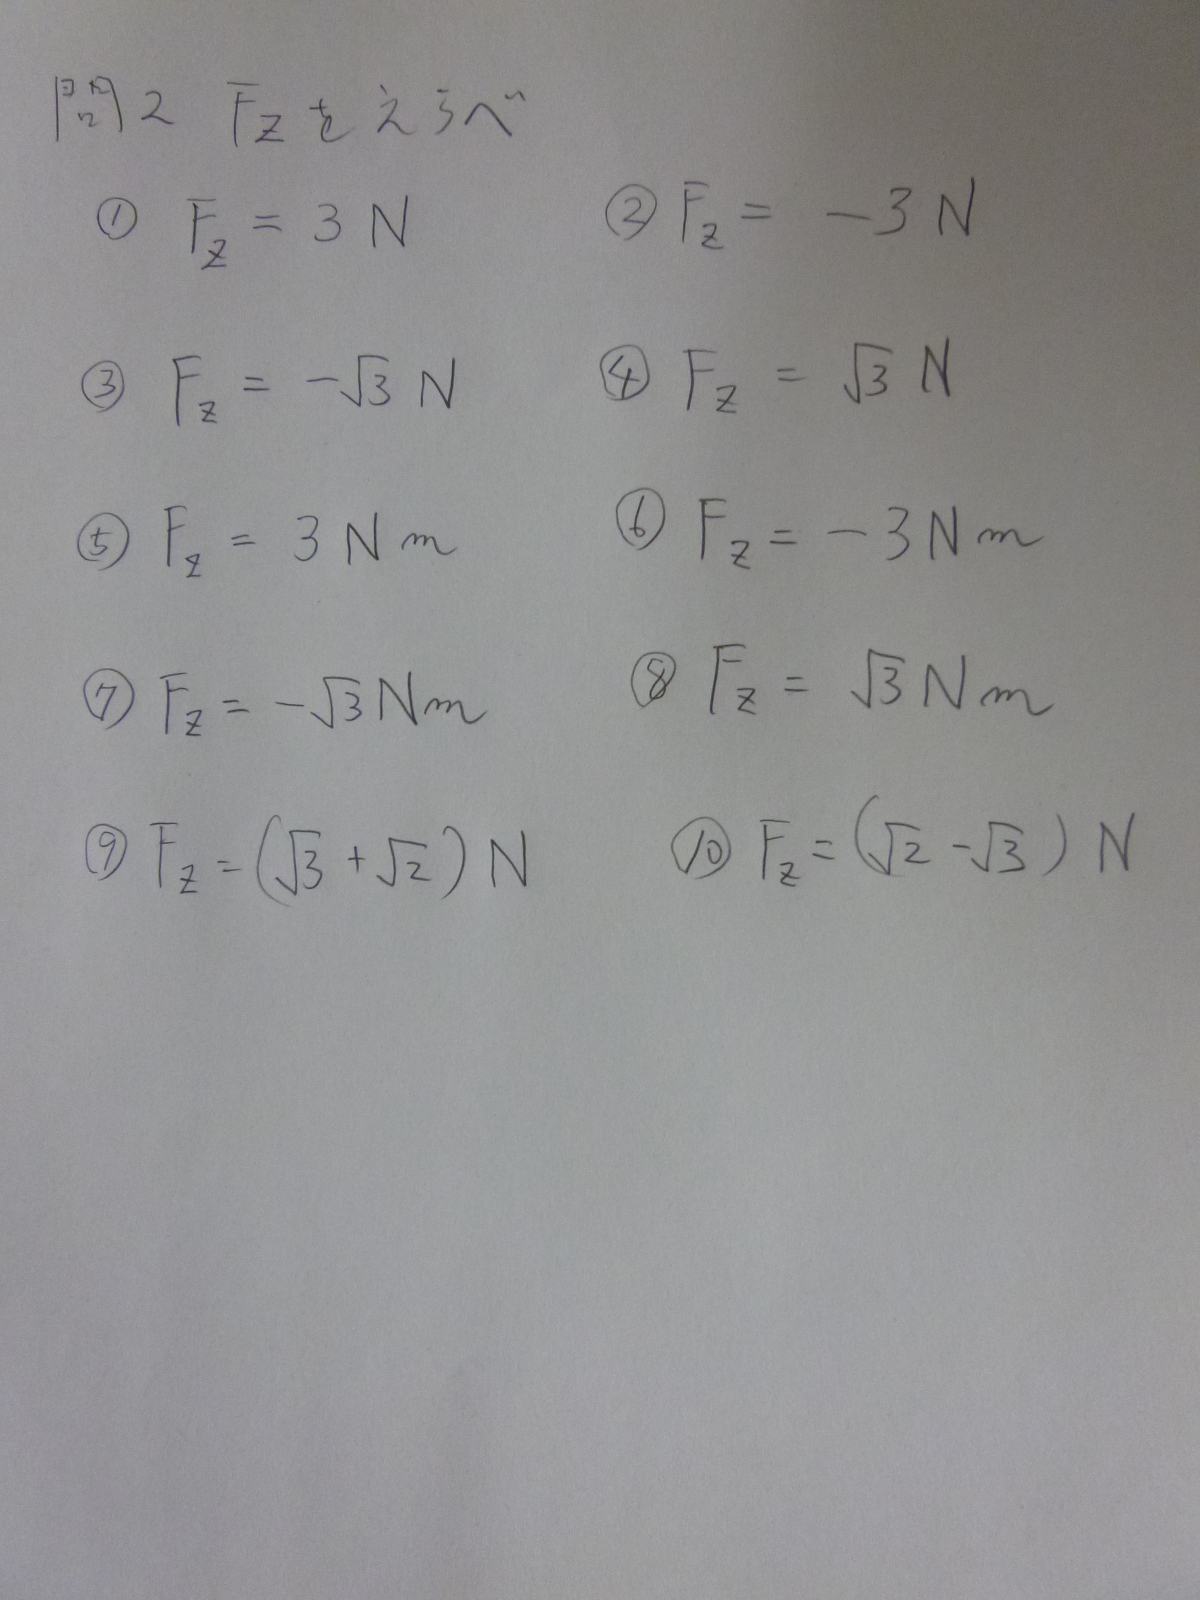 問2 Fzをえらべ
① Fz = 3 N ② Fz = -3 N
③ Fz = -√3 N ④ Fz = √3 N
⑤ Fz = 3 N m ⑥ Fz = -3 N m
⑦ Fz = -√3 N m ⑧ Fz = √3 N m
⑨ Fz = (√3 + √2) N ⑩ Fz = (√2 - √3) N